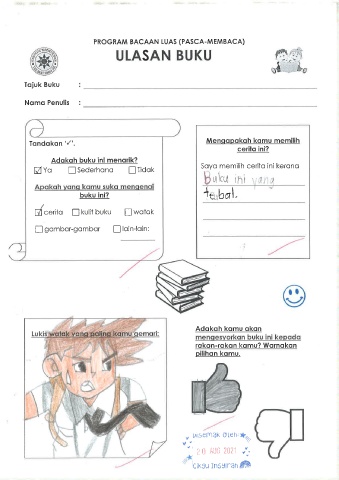 PROGRAM BACAAN LUAS (PASCA-MEMBACA)
ULASAN BUKU
Tajuk Buku :
Nama Penulis :
Tandakan '✓'.
Adakah buku ini menarik?
Ya Sederhana Tidak
Apakah yang kamu suka mengenai
buku ini?
cerita kulit buku watak
gambar-gambar lain-lain:
Mengapakah kamu memilih
cerita ini?
Saya memilih cerita ini kerana
Buku ini yang
tebal.
Lukis watak yang paling kamu gemari:
Adakah kamu akan
mengesyorkan buku ini kepada
rakan-rakan kamu? Warnakan
pilihan kamu.
Disemak oleh
26 AUG 2021
Cikgu Insyirah